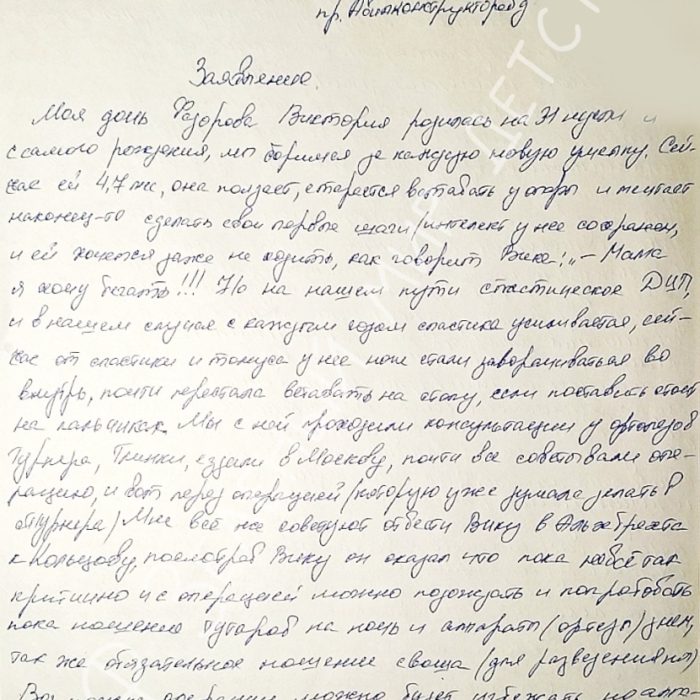 пр. Авиаконструкторов
Заявление.
Моя дочь Фёдорова Виктория родилась на 31 неделе и
с самого рождения, мы боримся за каждую новую умелку. Сей-
час ей 4,7 лет, она ползает, старается вставать у опоры и мечтает
наконец-то сделать свои первые шаги (интелект у нее сохранен,
и ей хочется даже не ходить, как говорит Вика: „– Мама
я хочу бегать"!!! Но на нашем пути спастическое ДЦП,
и в нашем случае с каждым годом спастика усиливается, сей-
час от спастики и тонуса у нее ножки стали заворачиваться во
внутрь, почти перестала вставать на стопу, если поставить стоит
на пальчиках. Мы с ней проходили консультации у ортопедов
Турнера, Глинки, ездили в Москву, почти все советывали опе-
рацию, и вот перед операцией (которую уже думала делать в
Турнера) Мне всё же советуют отвести Вику в Альбрехта
к Кольцову, посмотрев Вику он сказал что пока не всё так
критично и с операцией можно подождать и попробовать
пока ношение туторов на ночь и аппараты (ортезы) днем,
так же обязательное ношение сваша (для разведения ног)
Возможно операции можно будет избежать но
ДЕТСТ